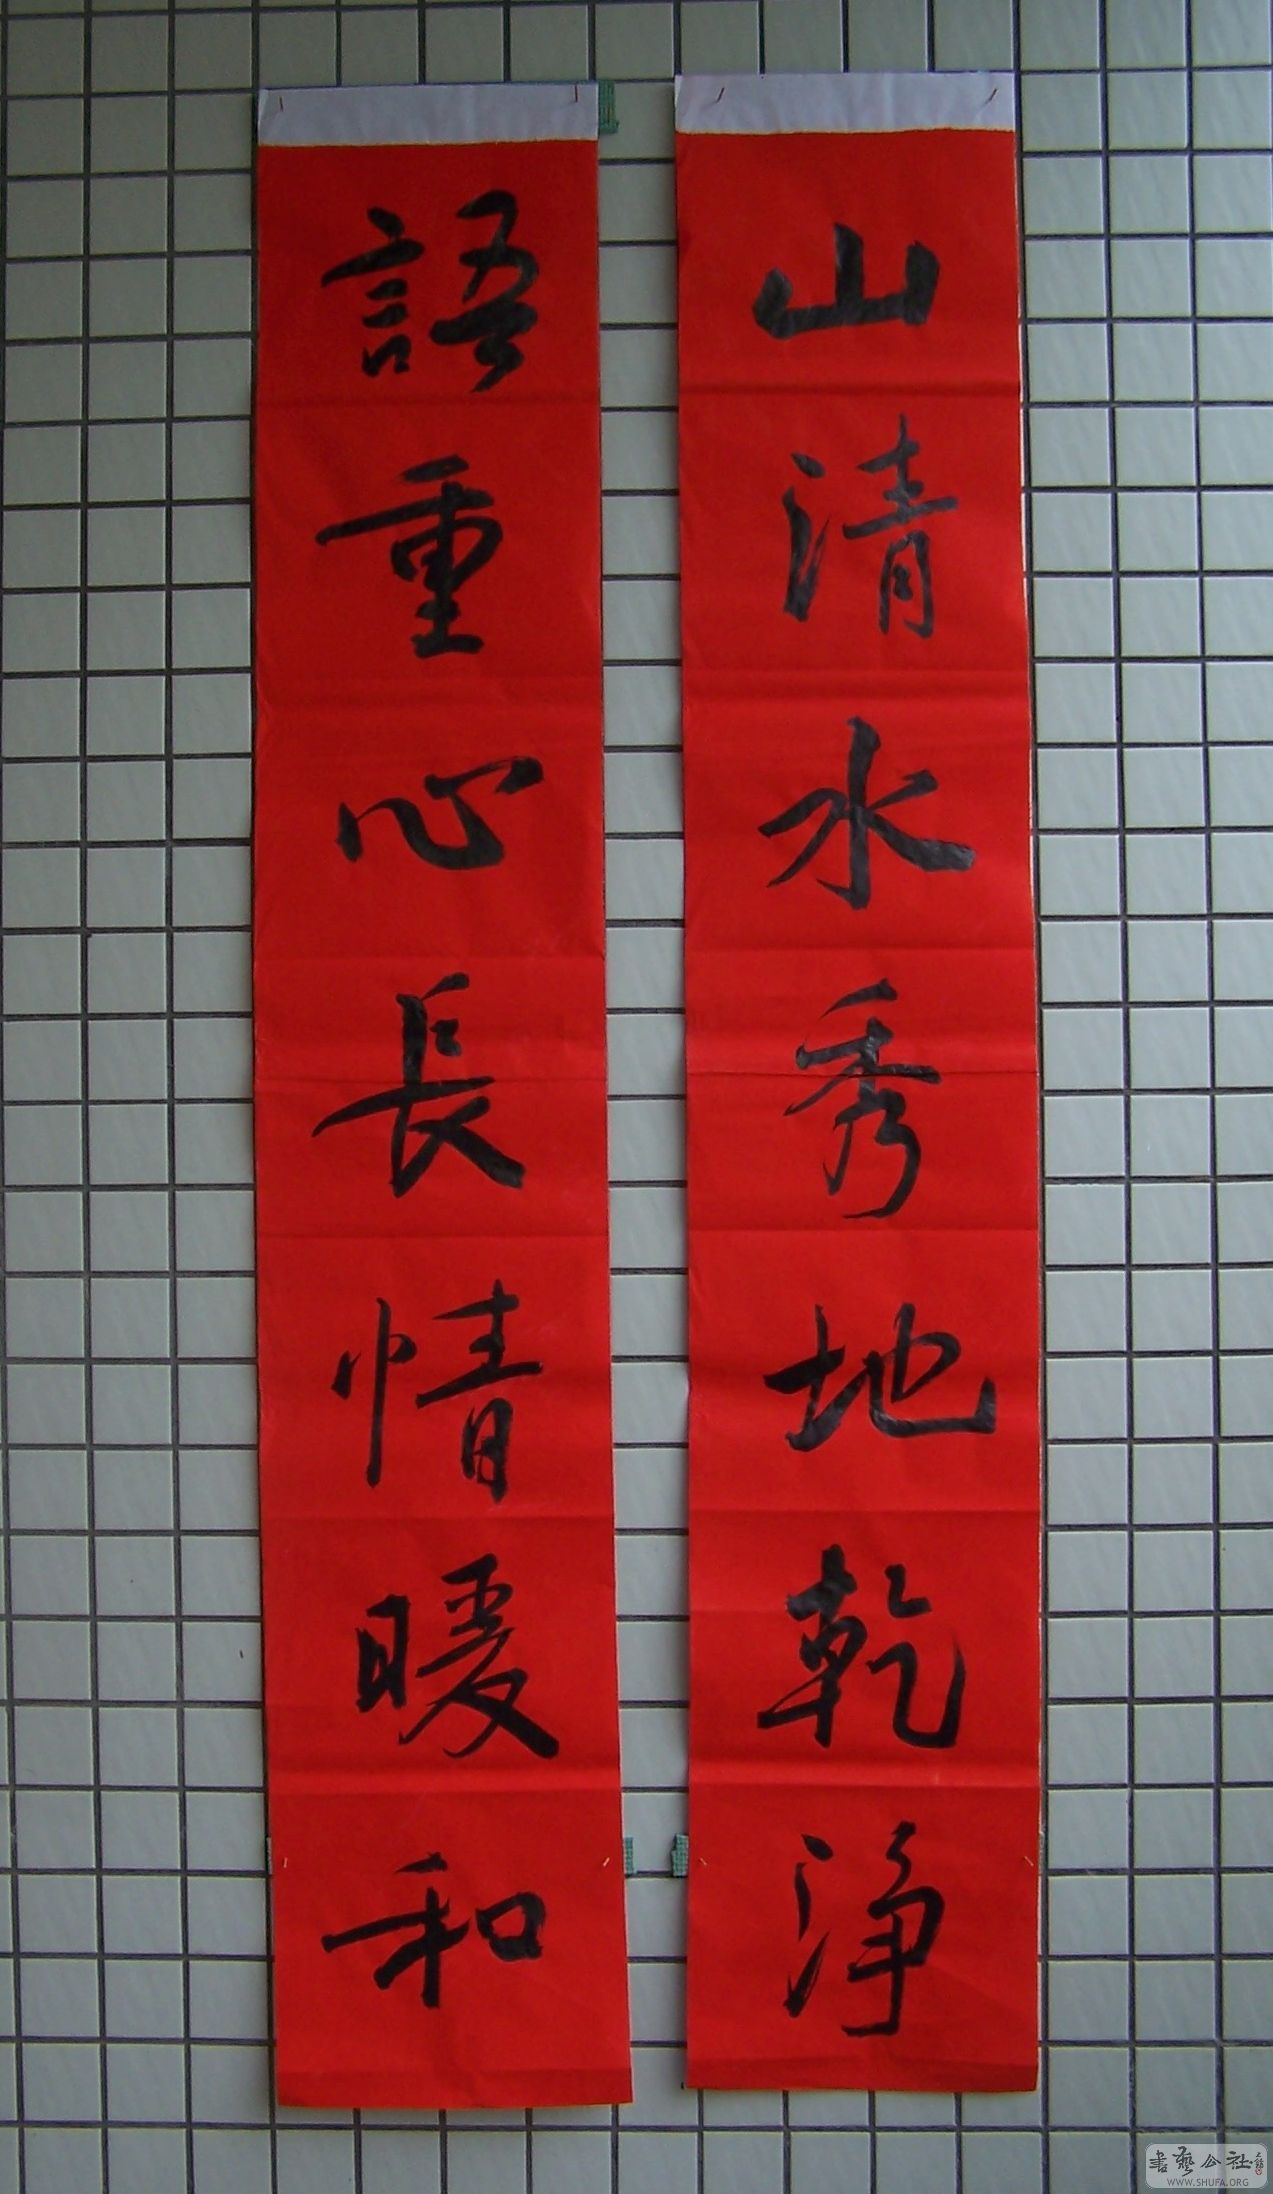 山清水秀地乾淨
語重心長情暖和
書藝公社
WWW.SHUFA.ORG